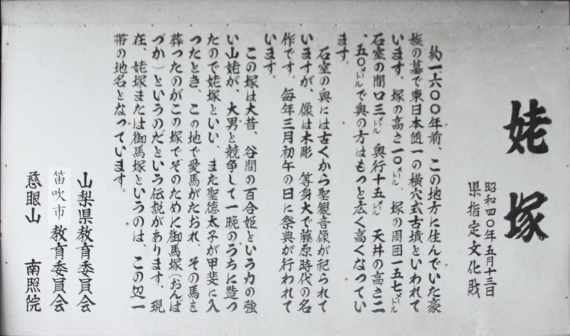 姥塚
昭和四〇年五月十三日
県指定文化財
約一六〇〇年前、この地方に住んでいた豪
族の墓で東日本随一の横穴式古墳といわれて
います。塚の高さ一〇㍍ 塚の周囲一五七㍍
石室の間口三㍍ 奥行十五㍍ 天井の高さ二
、五〇㍍で奥の方はもっと広く高くなってい
ます。
石室の奥には古くから聖観音像が祀られて
いますが、像は木彫 等身大で藤原時代の名
作です。毎年三月初午の日に祭典が行われて
います。
この塚は大昔、谷間の百合姫という力の強
い山姥が、大男と競争して一晩のうちに造っ
たので姥塚といい、また聖徳太子が甲斐に入
ったとき、この地で愛馬がたおれ、その馬を
葬ったのがこの塚でそのために御馬塚(おんば
づか)というのだという伝説があります。現
在、姥塚または御馬塚というのは、この辺一
帯の地名となっています。
山梨県教育委員会
笛吹市教育委員会
慈眼山 南照院